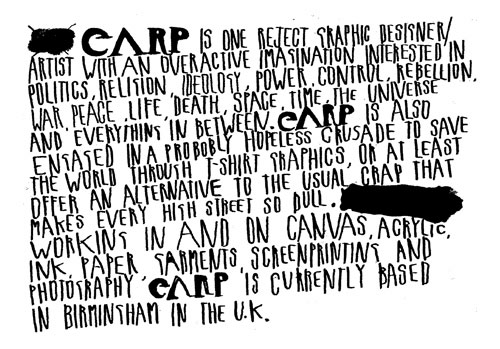 CARP IS ONE REJECT GRAPHIC DESIGNER/
ARTIST WITH AN OVERACTIVE IMAGINATION INTERESTED IN
POLITICS, RELIGION, IDEOLOGY, POWER, CONTROL, REBELLION,
WAR, PEACE, LIFE, DEATH, SPACE, TIME, THE UNIVERSE
AND EVERYTHING IN BETWEEN. CARP IS ALSO
ENGAGED IN A PROBOBLY HOPELESS CRUSADE TO SAVE
THE WORLD THROUGH T-SHIRT GRAPHICS, OR AT LEAST
OFFER AN ALTERNATIVE TO THE USUAL CRAP THAT
MAKES EVERY HIGH STREET SO DULL.
WORKING IN AND ON CANVAS, ACRYLIC,
INK, PAPER, GARMENTS, SCREENPRINTING AND
PHOTOGRAPHY, CARP IS CURRENTLY BASED
IN BIRMINGHAM IN THE U.K.